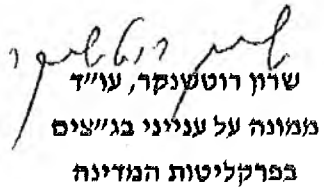 שרון רוטשנקר, עו״ד
ממונה על ענייני בג״צים
בפרקליטות המדינה